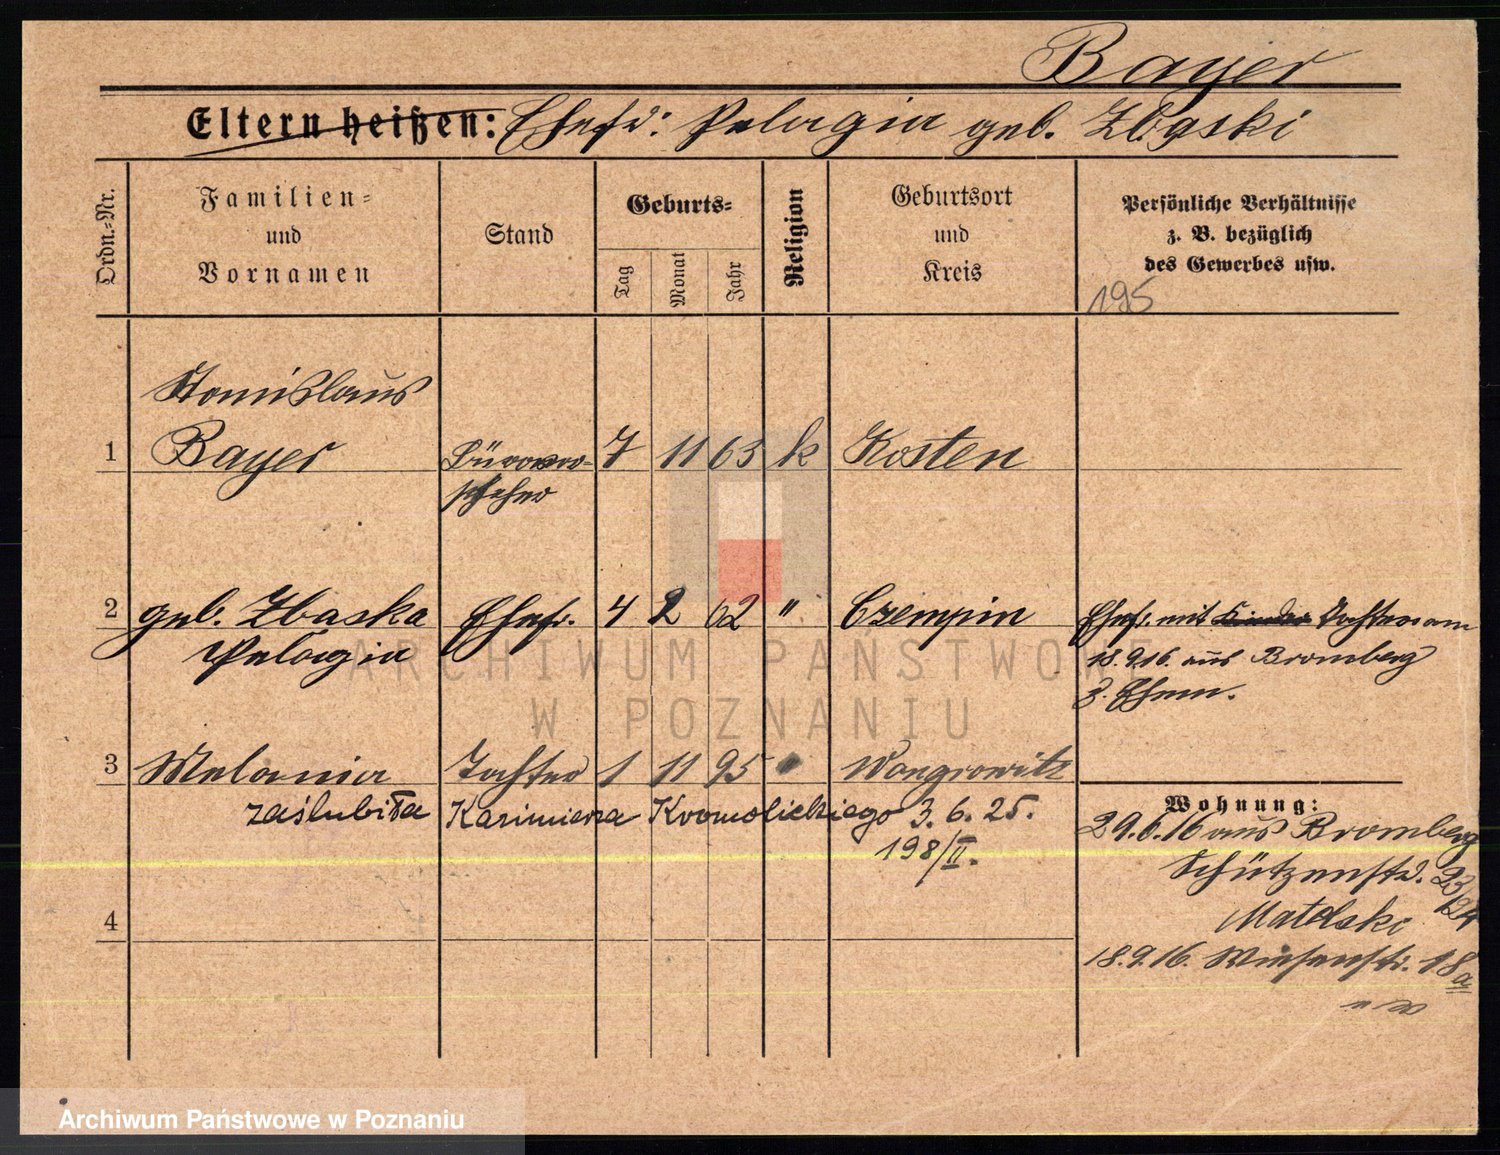 Bayer
Eltern heißen: Ehefr: Pelagia geb. Zbąski
Ordn.-Nr.
Familien-
und
Vornamen
Stand
Geburts-
Tag
Monat
Jahr
Religion
Geburtsort
und
Kreis
Persönliche Verhältnisse
z. B. bezüglich
des Gewerbes usw.
195
Stanislaus
1 Bayer Bürovor- 7 11 63 k Kosten
steher
2 geb. Zbaska Ehefr. 4 2 62 " Czempin Ehefr. mit Kinder Tochter am
Pelagia 18.9.16. aus Bromberg
z. Ehem.
3 Melania Tochter 1 11 95 " Wongrowitz
zaślubiła Kazimierza Kromolickiego 3. 6. 25.
198/II.
Wohnung:
29.6.16 aus Bromberg
Schützenstr. 23/24
Matelski
4
18.9.16. Wiesenstr. 18a
ARCHIWUM PAŃSTWOWE
W POZNANIU
Archiwum Państwowe w Poznaniu